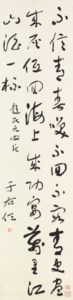 不信青春喚不回不容青史盡
成灰低回海上成功宴萬里江
山酒一杯
于右任